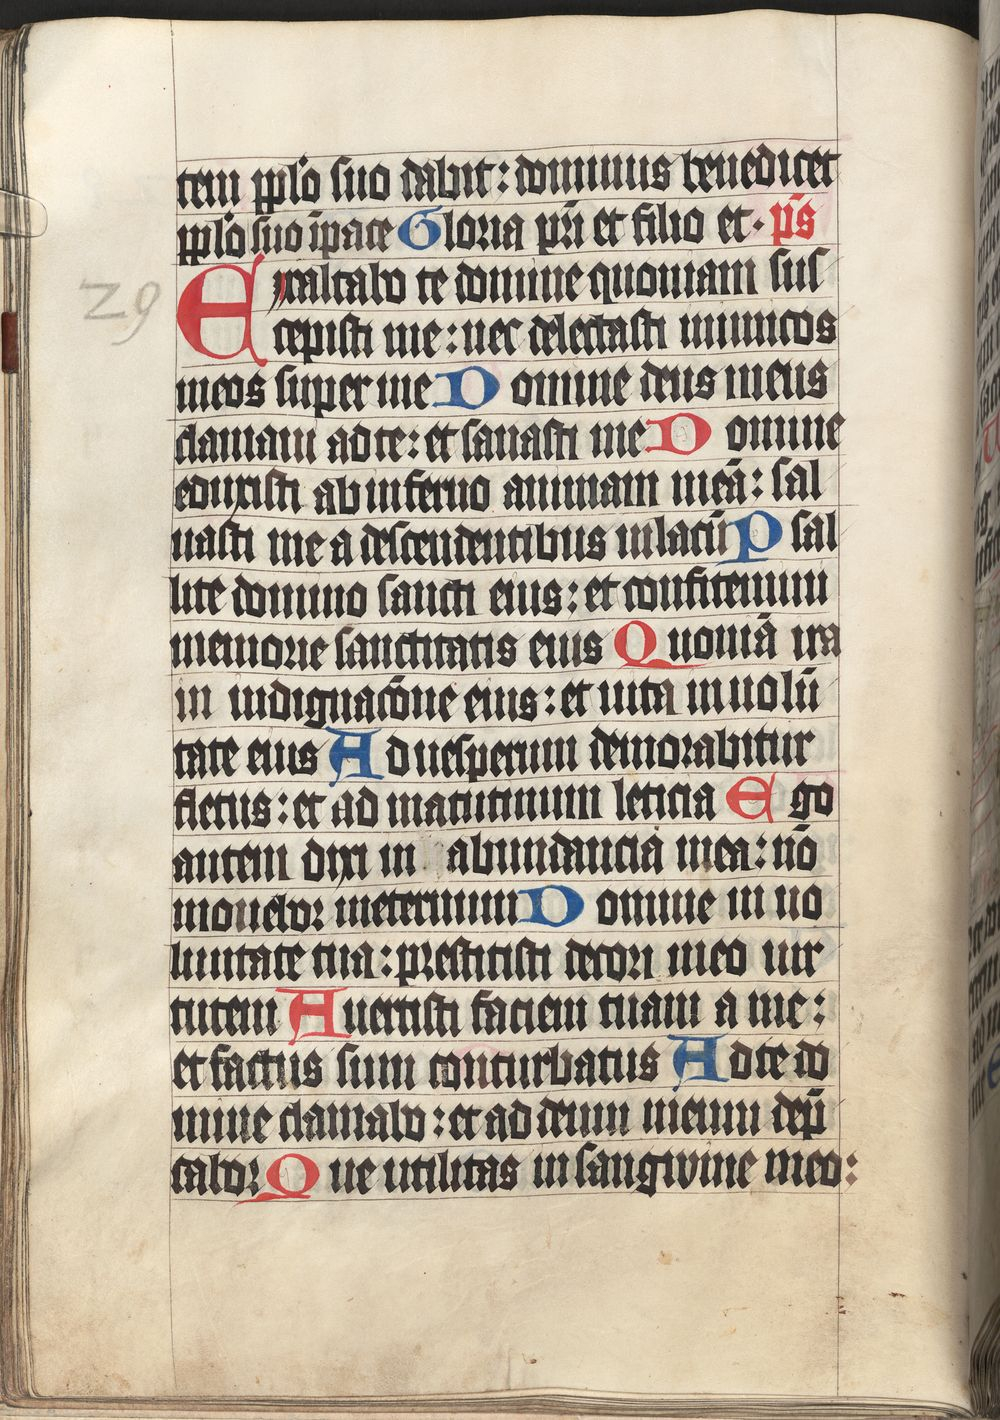 tem pplo suo dabit: dominus benedicet
pplo suo ī pace Gloria pr̄i et filio et. ps̄
Exaltabo te domine quoniam sus
cepisti me: nec delectasti inimicos
meos super me Domine deus meus
clamaui ad te: et sanasti me Domine
29
eduxisti ab inferno animam meā: sal
uasti me a descendentibus in lacū Psal
lite domino sancti eius: et confitemini
memorie sanctitatis eius Quoniā ira
in indignacōne eius: et uita in uolū
tate eius Ad uesperum demorabitur
fletus: et ad matutinum leticia Ego
autem dixi in abundancia mea: nō
mouebor in eternum Domine in uo
luntate tua: prestitisti decori meo uir
tutem Auertisti faciem tuam a me:
et factus sum conturbatus Ad te do
mine clamabo: et ad deum meum dep̄
cabor Que utilitas in sangwine meo: